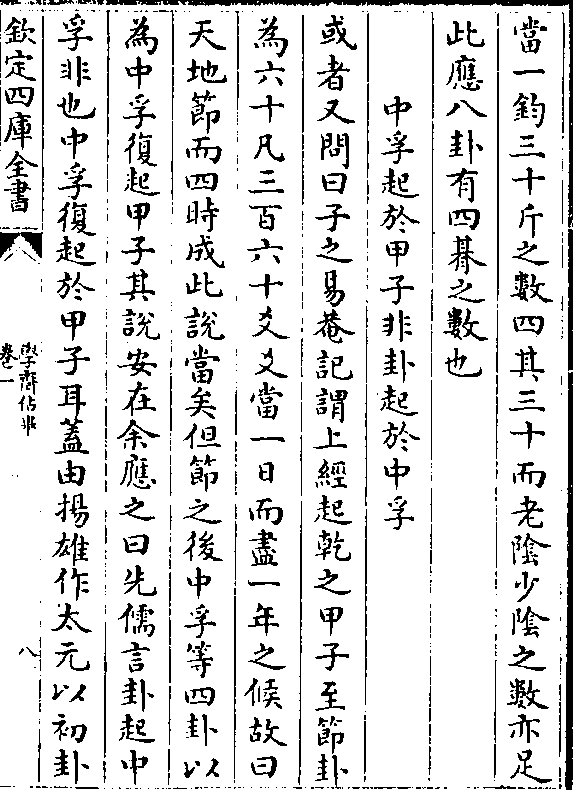 當一鈞三十斤之數四其三十而老陰少陰之數亦足
此應八卦有四朞之數也
中孚起於甲子非卦起於中孚
或者又問曰子之易菴記謂上經起乾之甲子至節卦
為六十凡三百六十爻爻當一日而盡一年之候故曰
天地節而四時成此說當矣但節之後中孚等四卦以
為中孚復起甲子其說安在余應之曰先儒言卦起中
孚非也中孚復起於甲子耳蓋由揚雄作太元以初卦
欽定四庫全書
學齋佔畢
卷一
八